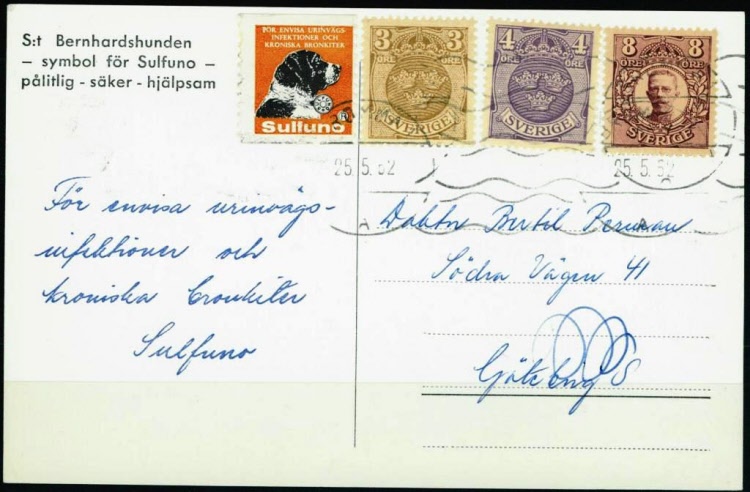 S:t Bernhardshunden
– symbol för Sulfuno –
pålitlig - säker - hjälpsam
FÖR ENVISA URINVÄGS-
INFEKTIONER OCH
KRONISKA BRONKITER
Sulfuno®
3 3
ÖRE ÖRE
SVERIGE
4 4
ÖRE ÖRE
SVERIGE
8 8
ÖRE ÖRE
SVERIGE
25.5.62
25.5.62
A
A
För envisa urinvägs-
infektioner och
kroniska bronkiter
Sulfuno
Doktor Bertil
Södra Vägen 41
Göteborg S